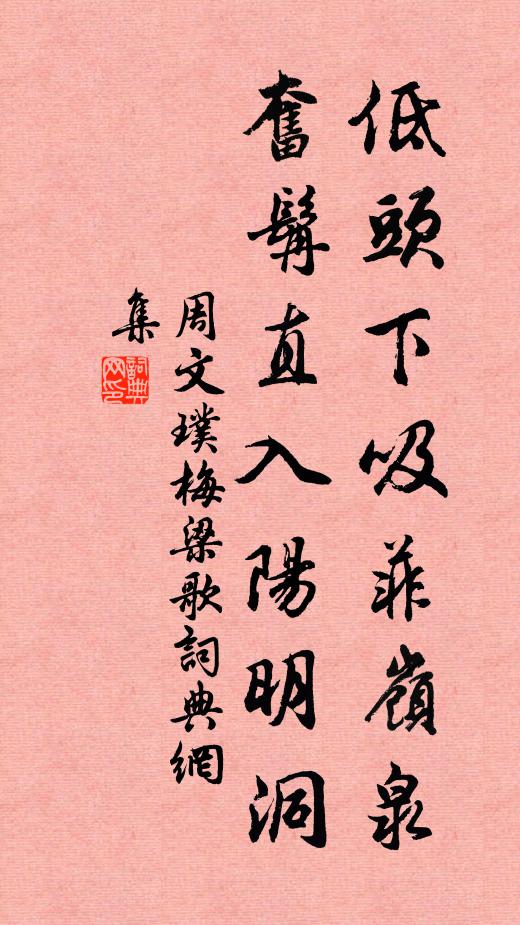 低頭下吸菲嶺泉
奮髯直入陽明洞
周文璞梅梁歌詞典網
集
詞典
网印